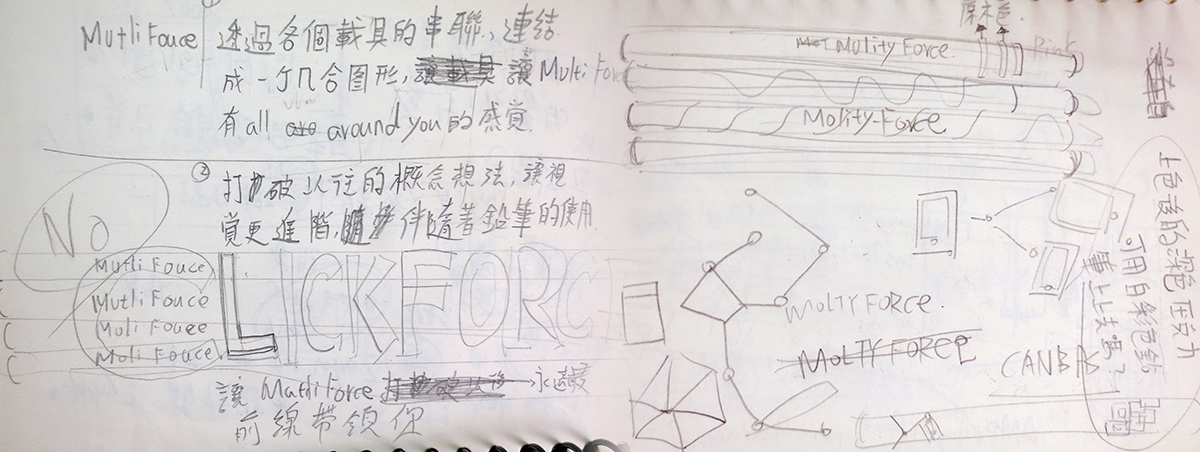 Mutli Fouce
透過各個載具的串聯, 連結
成一個几合图形, 讓 Multi Force
有 all around you 的感覚.
② 打破以往的概念想法, 讓視
覚更進階, 伴隨著鉛筆的使用.
No
Mutli Fouce
Mutli Fouce
Moli Fouce
Moli Fouce
LICKFORCE
讓 Mutli Force 永遠最
前線带領你
原木色.
Mulity Force
Pink
Molity-Force
MOLTY FORCE.
MOLTY FORCE
CANBA